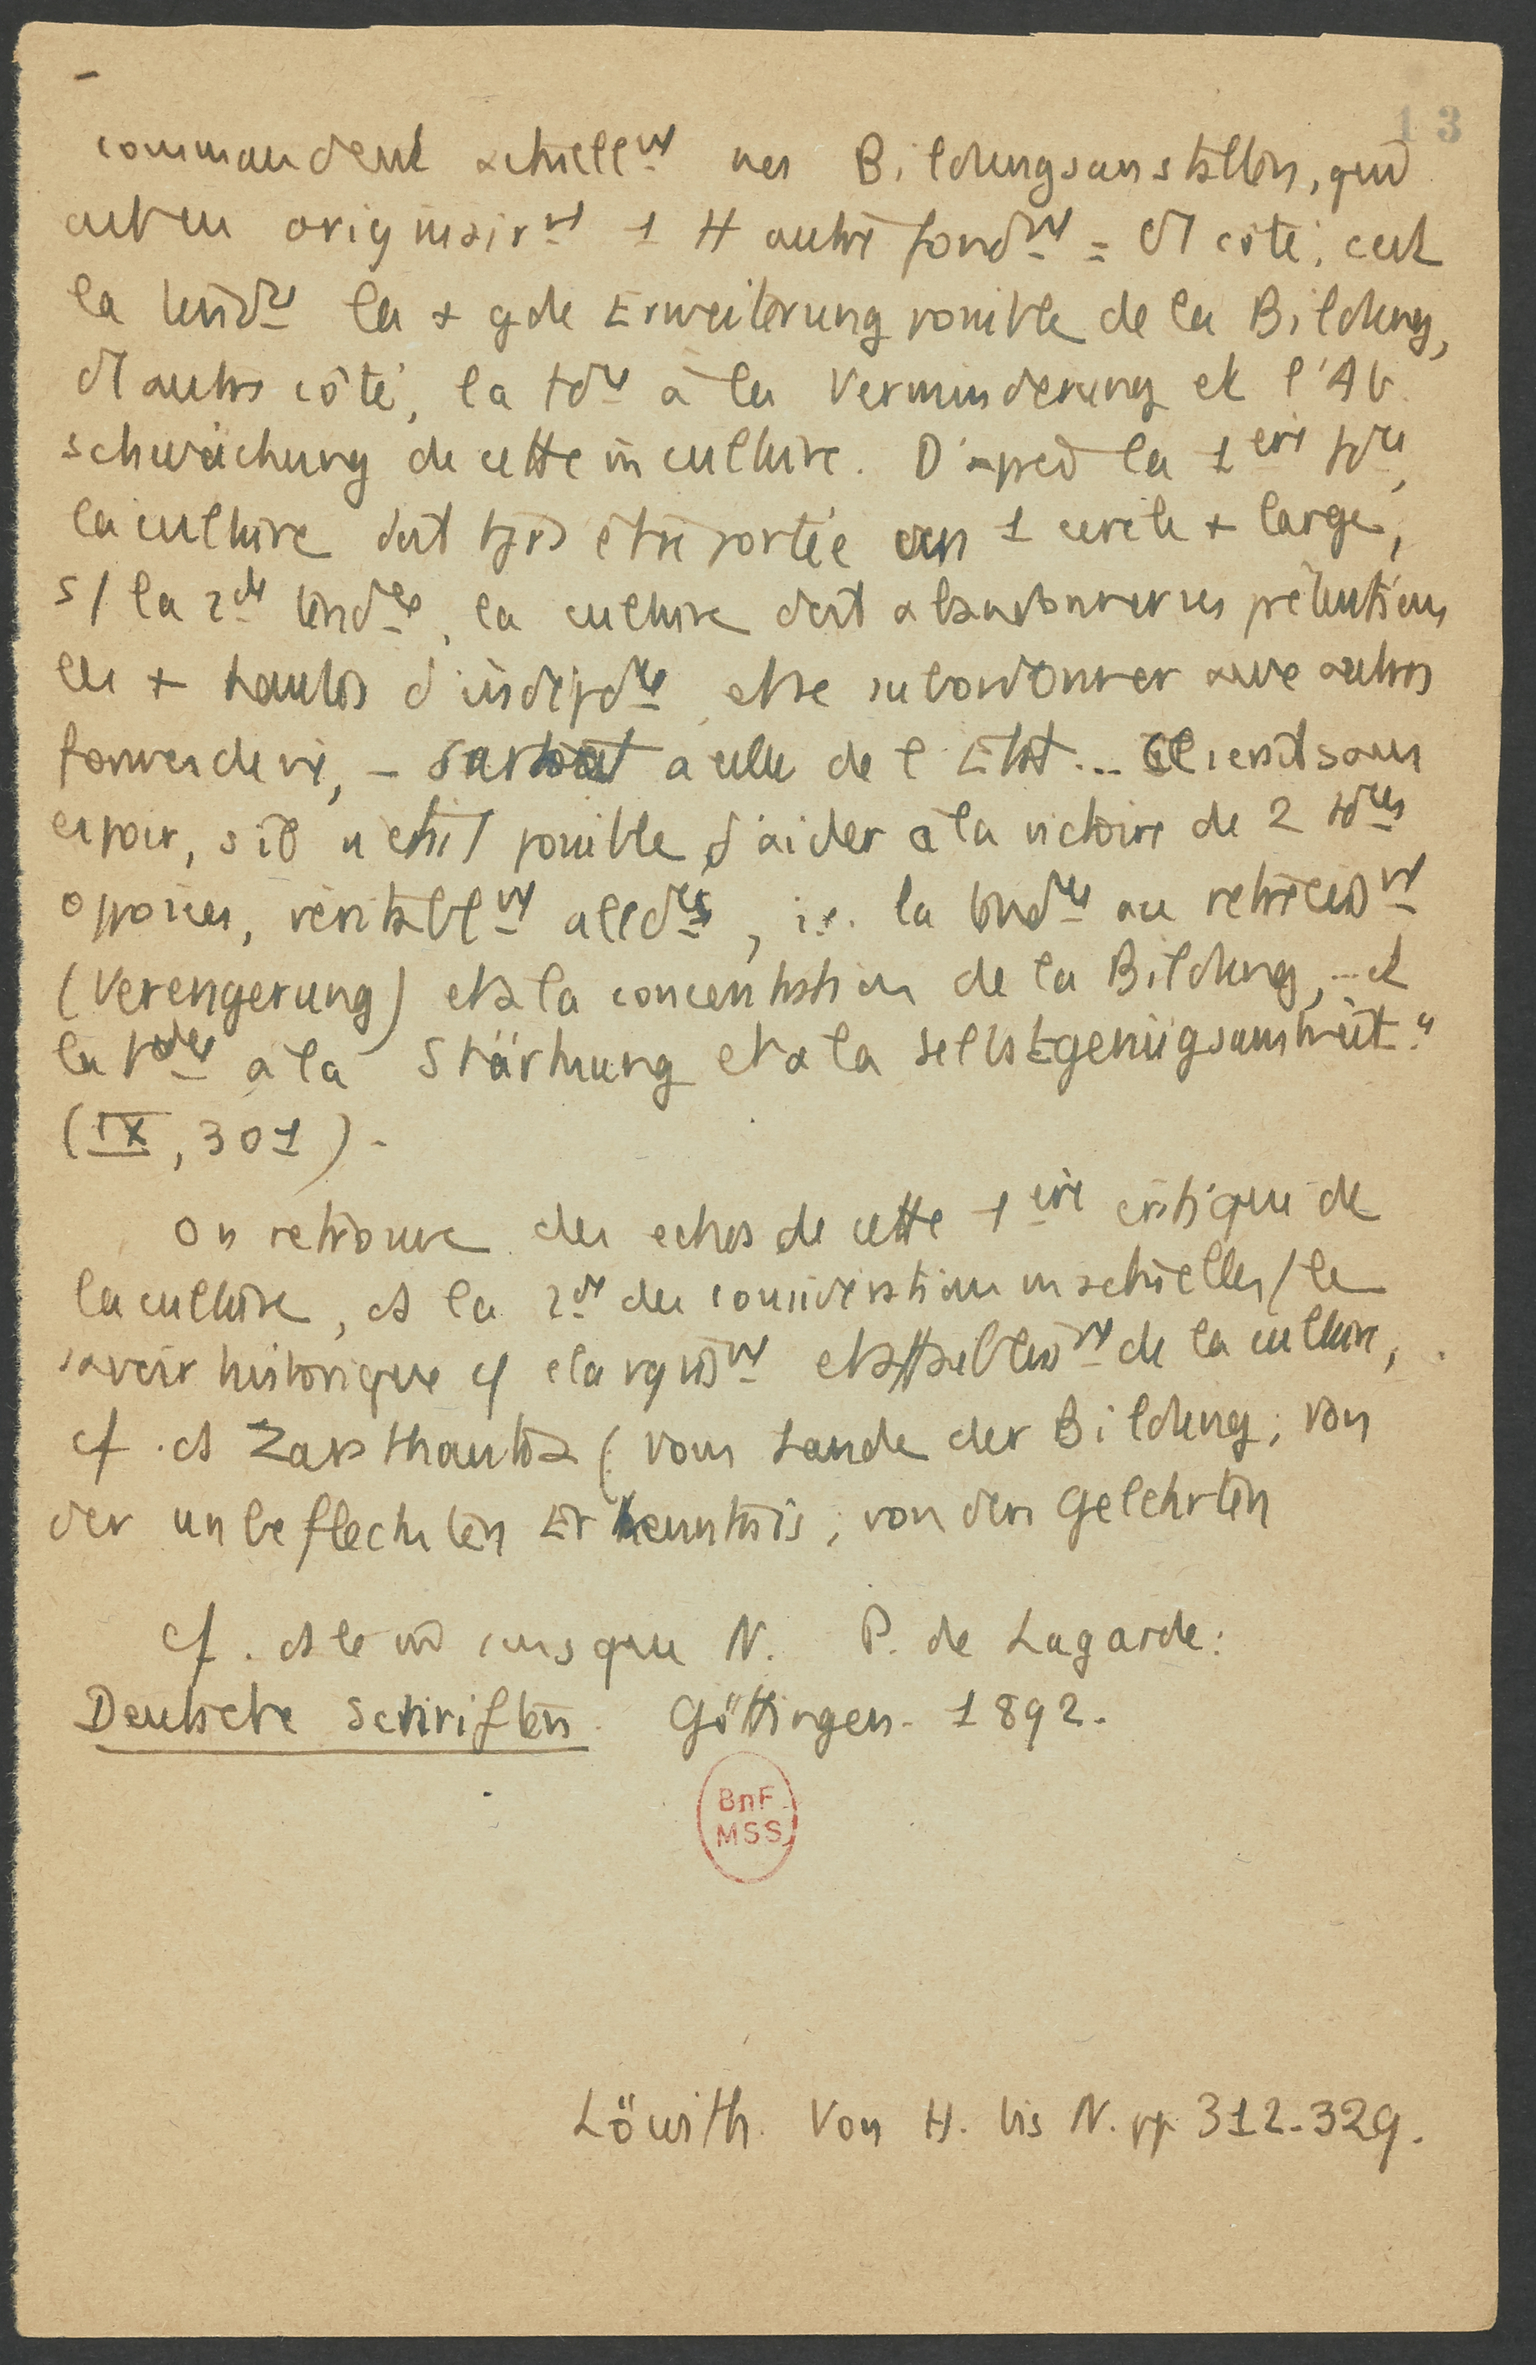 13
commandent actuellmt nos Bildungsanstalten, qui
ont eu originairmt 1 tt autre fondmt = d'1 côté, c'est
la tendce la + gde Erweiterung possible de la Bildung,
d'1 autre côté, la tdce à la Verminderung et l'Ab
schwächung de cette m culture. D'après la 1ère tdce,
la culture doit tjrs être portée ds 1 cercle + large,
s/ la 2de tendce, la culture doit abandonner ses prétentions
les + hautes d'indépdce, et se subordonner à une autre
forme de vie, – surtout à celle de l'Etat... Ce serait sans
espoir, s'il n'était possible d'aider à la victoire de 2 tdces
opposées, véritablmt alldes, i.e. la tendce au rétrécissmt
(Verengerung) et à la concentration de la Bildung, ... et
la tdce à la Stärkung et à la selbstgenügsamkeit."
(IX, 301).
On retrouve des echos de cette 1ère critique de
la culture, ds la 2de des considérations inactuelles / le
savoir historique cf élargissmt et affaiblissmt de la culture,
cf. ds Zarathoustra (Vom Lande der Bildung; von
der unbeflechten Erkenntnis; von den Gelehrten
cf. ds le m sens que N. P. de Lagarde:
Deutsche Schriften. Göttingen. 1892.
BnF
MSS
Löwith. Von H. bis N. pp. 312-329.